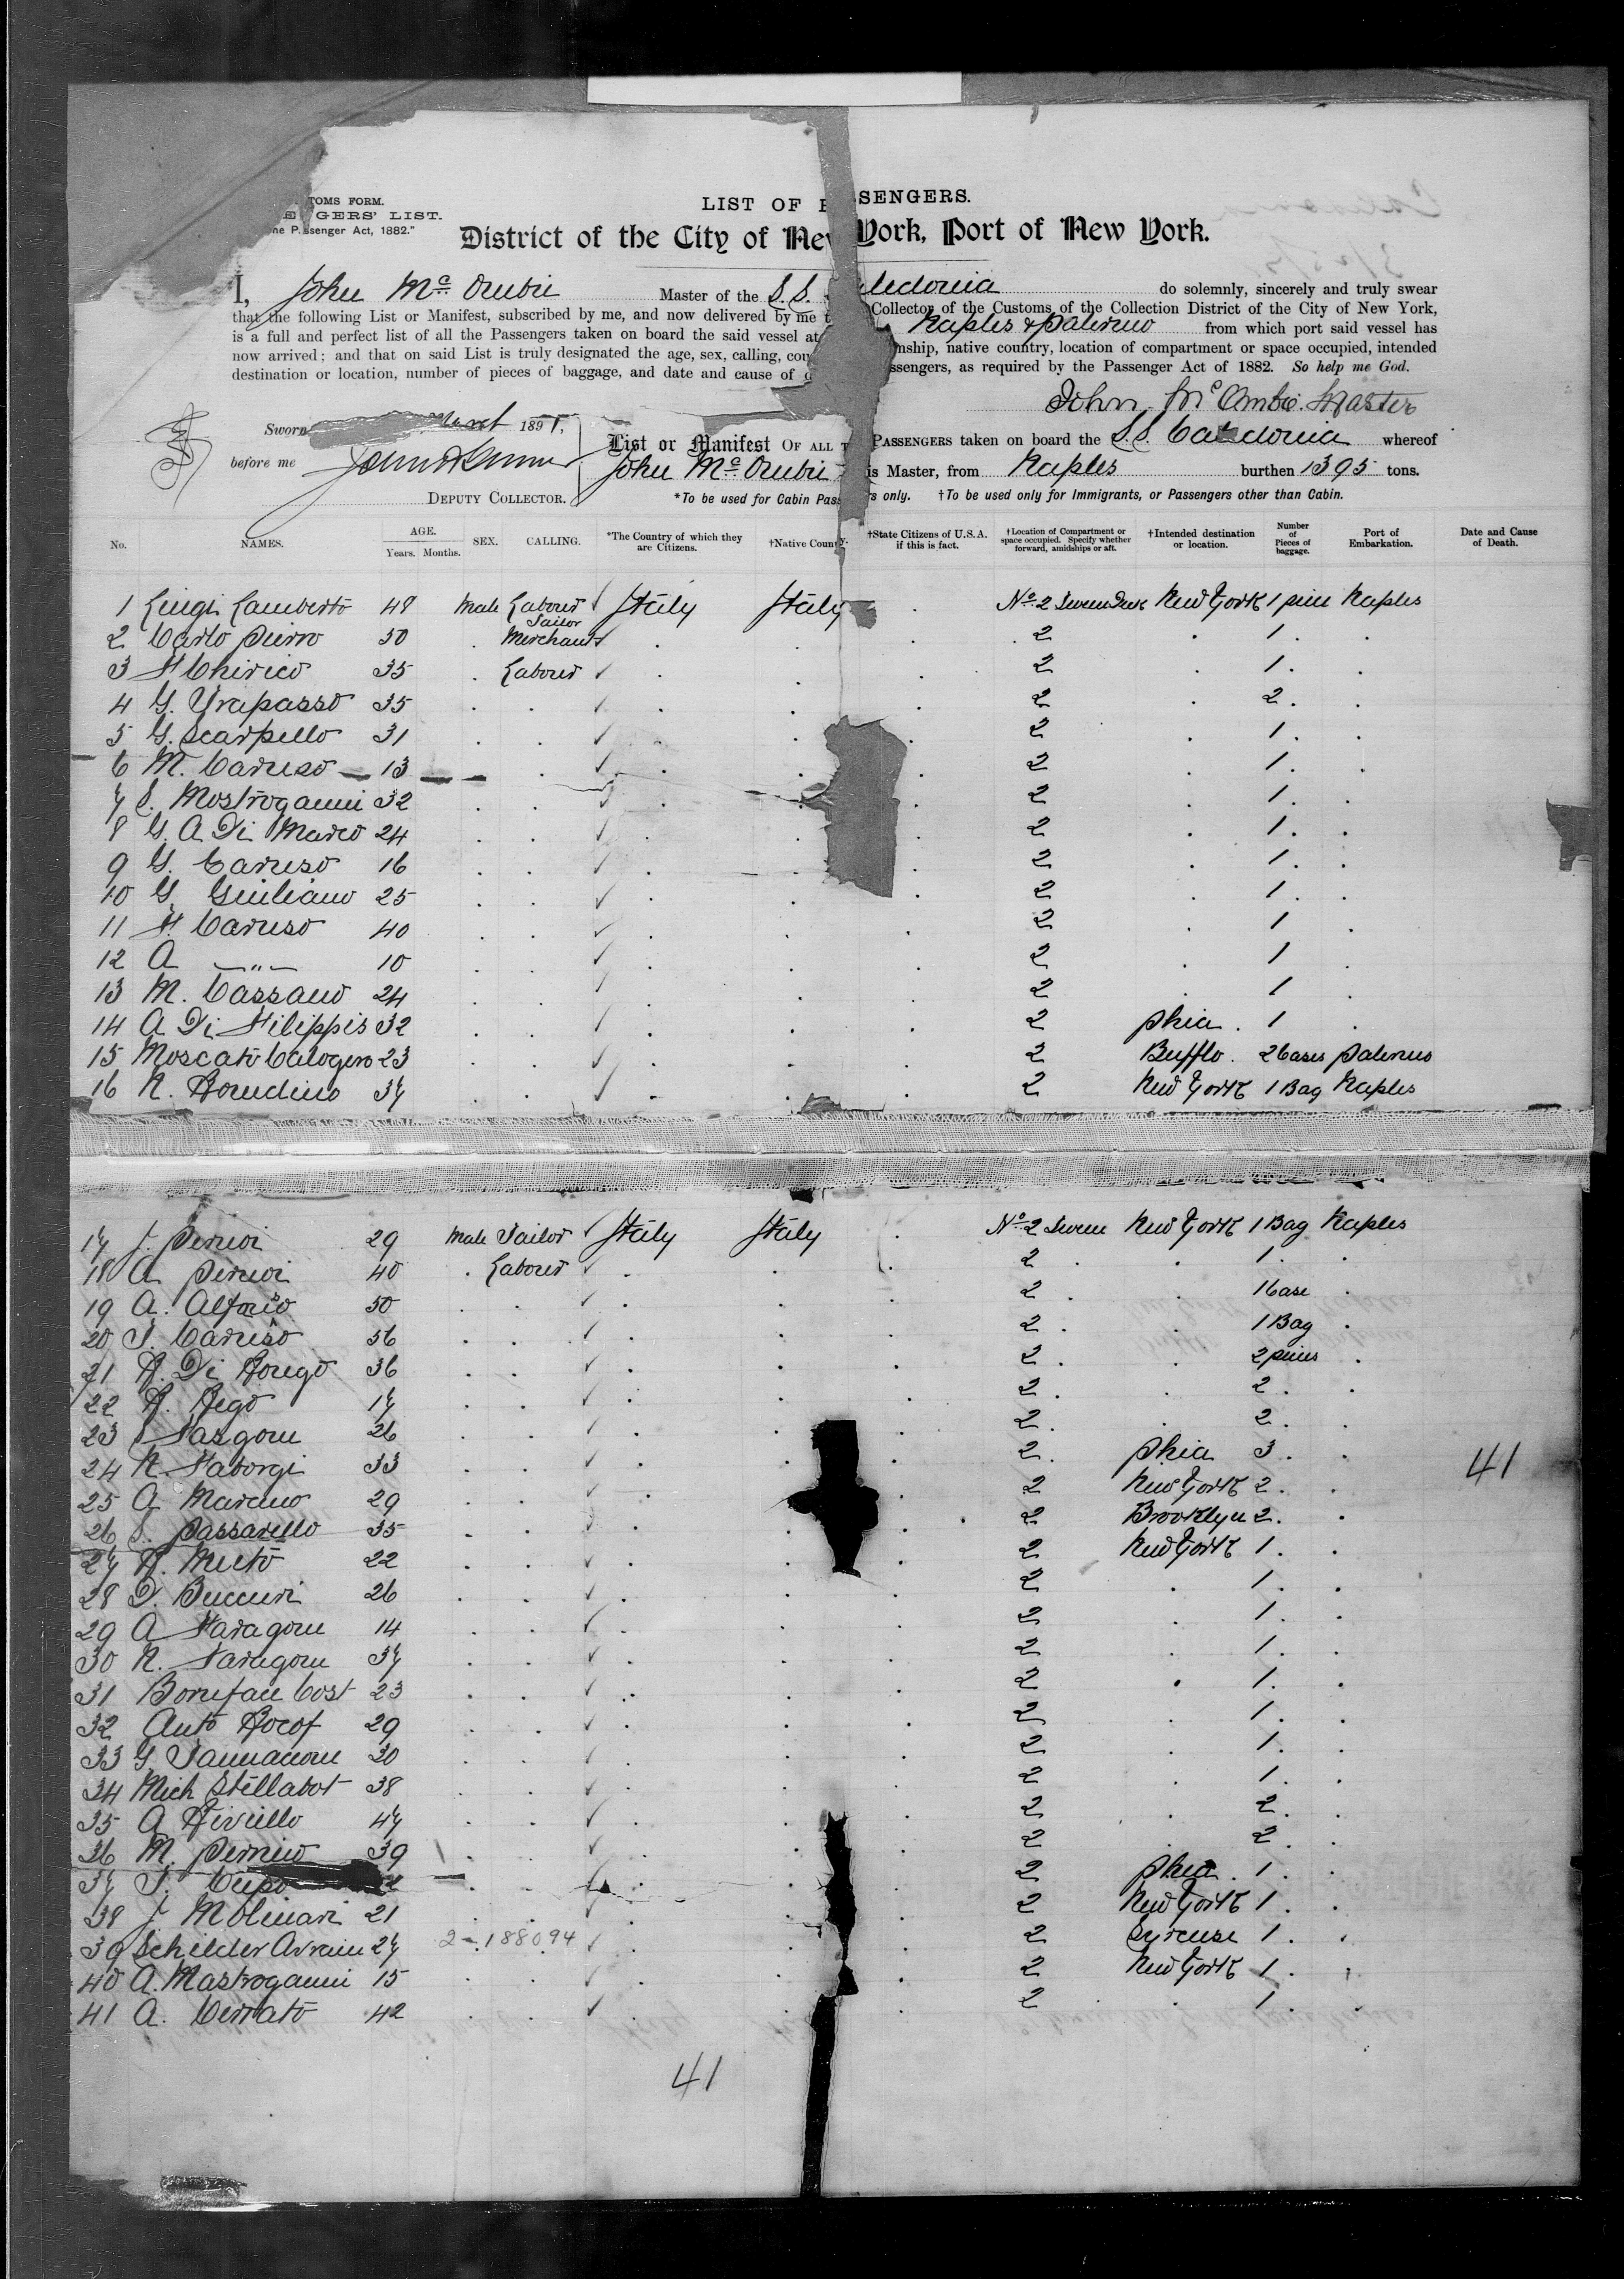 TOMS FORM.
GERS' LIST.
he P ssenger Act, 1882."
LIST OF P SSENGERS.
District of the City of New York, Port of New York.
I, John Mc Master of the S.S. ledonia do solemnly, sincerely and truly swear
that the following List or Manifest, subscribed by me, and now delivered by me t Collector of the Customs of the Collection District of the City of New York,
is a full and perfect list of all the Passengers taken on board the said vessel at Naples & Palermo from which port said vessel has
now arrived; and that on said List is truly designated the age, sex, calling, cou nship, native country, location of compartment or space occupied, intended
destination or location, number of pieces of baggage, and date and cause of d ssengers, as required by the Passenger Act of 1882. So help me God.
John Mc Master
Sworn March 1891,
before me
DEPUTY COLLECTOR.
List or Manifest OF ALL T PASSENGERS taken on board the S.S. Caledonia whereof
John Mc is Master, from Naples burthen 1395 tons.
*To be used for Cabin Pass rs only. †To be used only for Immigrants, or Passengers other than Cabin.
No. NAMES. AGE. Years. Months. SEX. CALLING. *The Country of which they are Citizens. †Native Country. †State Citizens of U.S.A. if this is fact. †Location of Compartment or space occupied. Specify whether forward, amidships or aft. †Intended destination or location. Number of Pieces of baggage. Port of Embarkation. Date and Cause of Death.
1 Luigi Lamberto 48 Male Labour Italy Italy No. 2 New York 1 piece Naples
Tailor
2 Carlo Pierro 50 . Merchant . . 2 . 1 . .
3 F Chirico 35 . Labour . . 2 . 1 . .
4 G. Trapasso 35 . . . . 2 . 2 . .
5 G. Scarpello 31 . . . . 2 . 1 . .
6 M. Caruso 13 . . . 2 . 1 . .
7 S. Mostroganni 32 . . . . 2 . 1 . .
8 G. A Di Marco 24 . . . . 2 . 1 . .
9 G. Caruso 16 . . . . 2 . 1 . .
10 G. Giuliano 25 . . . . 2 . 1 . .
11 F. Caruso 40 . . . . 2 . 1 .
12 A —"— 10 . . . . 2 . 1 .
13 M. Cassano 24 . . . . 2 . 1 .
14 A Di Filippis 32 . . . . 2 Phia . 1 .
15 Moscato Calogero 23 . . . . 2 Bufflo . 2 Cases Palermo
16 N. 37 . . . . 2 New York 1 Bag Naples
17 J. 29 Male Tailor Italy Italy No. 2 New York 1 Bag Naples
18 A 40 . Labour . . 2 . 1 . .
19 A. Alfano 50 . . . . 2 . 1 Case
20 T. Caruso 56 . . . . 2 . 1 Bag .
21 R. Di Rongo 36 . . . . 2 . 2 pieces .
22 R. Rego 17 . . . . 2 . 2 . .
23 26 . . . . 2 . 2 .
24 N. Faborgi 33 . . . . 2 Phia 3 . .
25 A Marano 29 . . . . 2 New York 2 . .
26 S. Passarello 35 . . . . 2 Brooklyn 2 . .
27 R. 22 . . . . 2 New York 1 . .
28 D. Buccuri 26 . . . . 2 . 1 . .
29 A Faragone 14 . . . . 2 . 1 . .
30 N. Faragone 37 . . . . 2 . 1 . .
31 Boniface Cost 23 . . . . 2 . 1 . .
32 Anto Rocof 29 . . . . 2 . 1 . .
33 G. 30 . . . . 2 . 1 . .
34 Mich Stellabot 38 . . . . 2 . 1 . .
35 A 47 . . . . 2 . 2 . .
36 M. 39 . . . . 2 . 2 . .
37 T. Cupo . . . . 2 Phia . 1 . .
38 J. Molinari 21 . . . . 2 New York 1 . .
39 Schilder 27 2-188094 . . 2 Syrcuse 1 . .
40 A. Mastroganni 15 . . . . 2 New York 1 . .
41 A. Cerrato 42 . . . . 2 . 1 . .
41
41